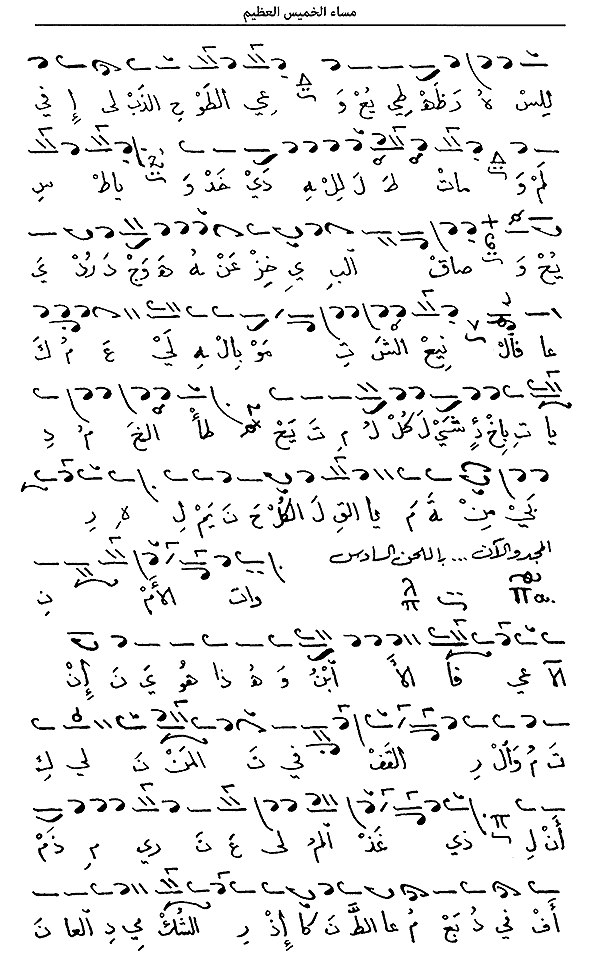 مساء الخميس العظيم
لِلسْ هُ دَ ظَهْ طِي يُعْ وَ عِي الطَوْ حِ الذَبْ لى إِ في
لَمْ وَ ماتْ طَ لَ لِلْ هِ دَيْ خَدْ وَ ياطْ سِ
يُعْ وَ صاقْ البِ يِ خِزْ عَنْ هُ هَ وَجْ دَ رُدْ يَ
عا فَالْ نِيعْ الشَ تِ مَوْ بِالْ هِ لَيْ عَ مُ كَ
يا تِ بِاخْ ذٍ شَيْ لَ كُلْ لُ مِ تَ يَحْ طأْ الخَ مُ دِ
بَيْ مِنْ ةً مَ يا القِ لَ الكُلْ حَ نَ يَمْ لِ هِ رِ
المجد والآن ... باللحن السادس
وات الأُمْ نِ
الآ عي فا الأَ أبْنُ وَ هُ ذا هُو يَ نَ إِنْ
تَ مُ وَالْ رِ القَفْ في نَ المَنْ نَ لي كِ
أَنْ لِ ذي غَذْ المُ لى عَ تَ ري مِ ذَمْ
أَفْ في دُ بَعْ مُ عا الطَّ نَ كا إِذْ رِ الشُكْ مي دِ العا نَ